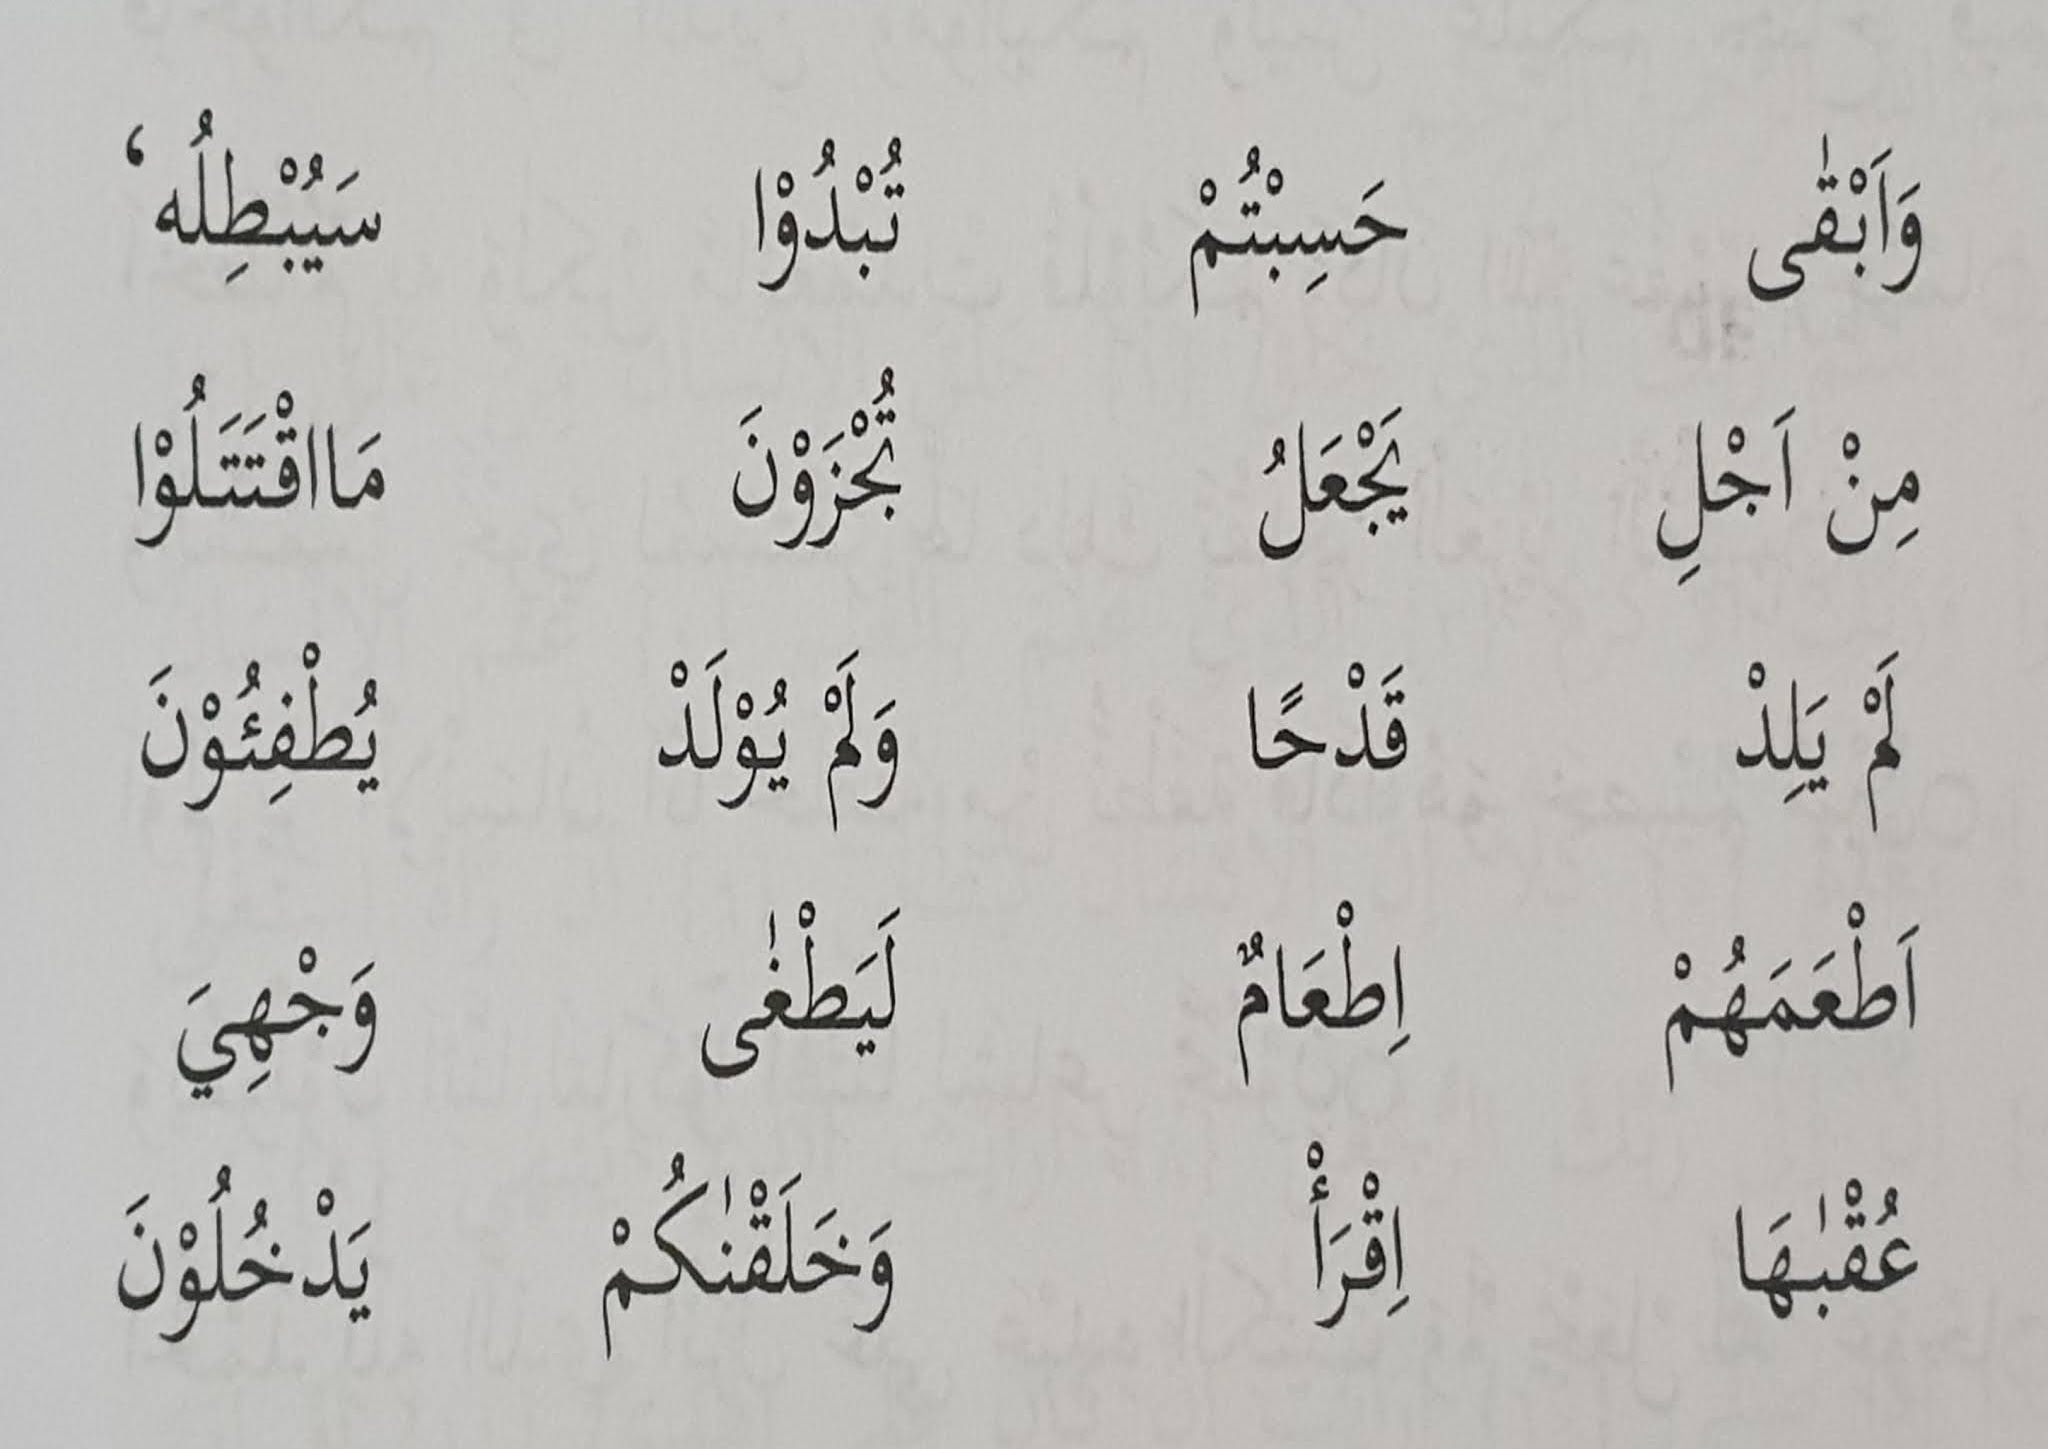 وَاَبْقٰى حَسِبْتُمْ تُبْدُوْا سَيُبْطِلُهٗ
مِنْ اَجْلِ يَجْعَلُ تُجْزَوْنَ مَااقْتَتَلُوْا
لَمْ يَلِدْ قَدْحًا وَلَمْ يُوْلَدْ يُطْفِئُوْنَ
اَطْعَمَهُمْ اِطْعَامٌ لَيَطْغٰى وَجْهِيَ
عُقْبٰهَا اِقْرَأْ وَخَلَقْنٰكُمْ يَدْخُلُوْنَ